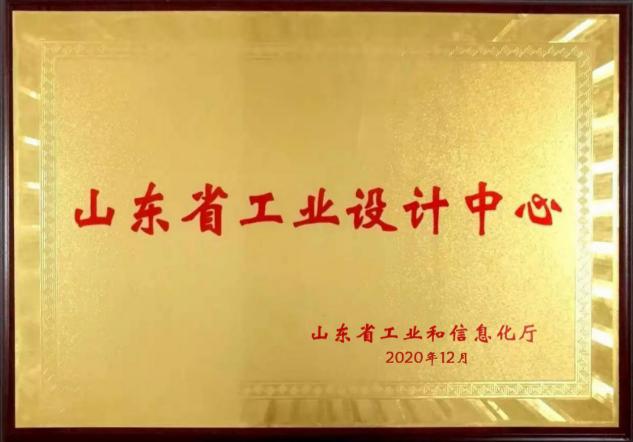 山东省工业设计中心
山东省工业和信息化厅
2020年12月